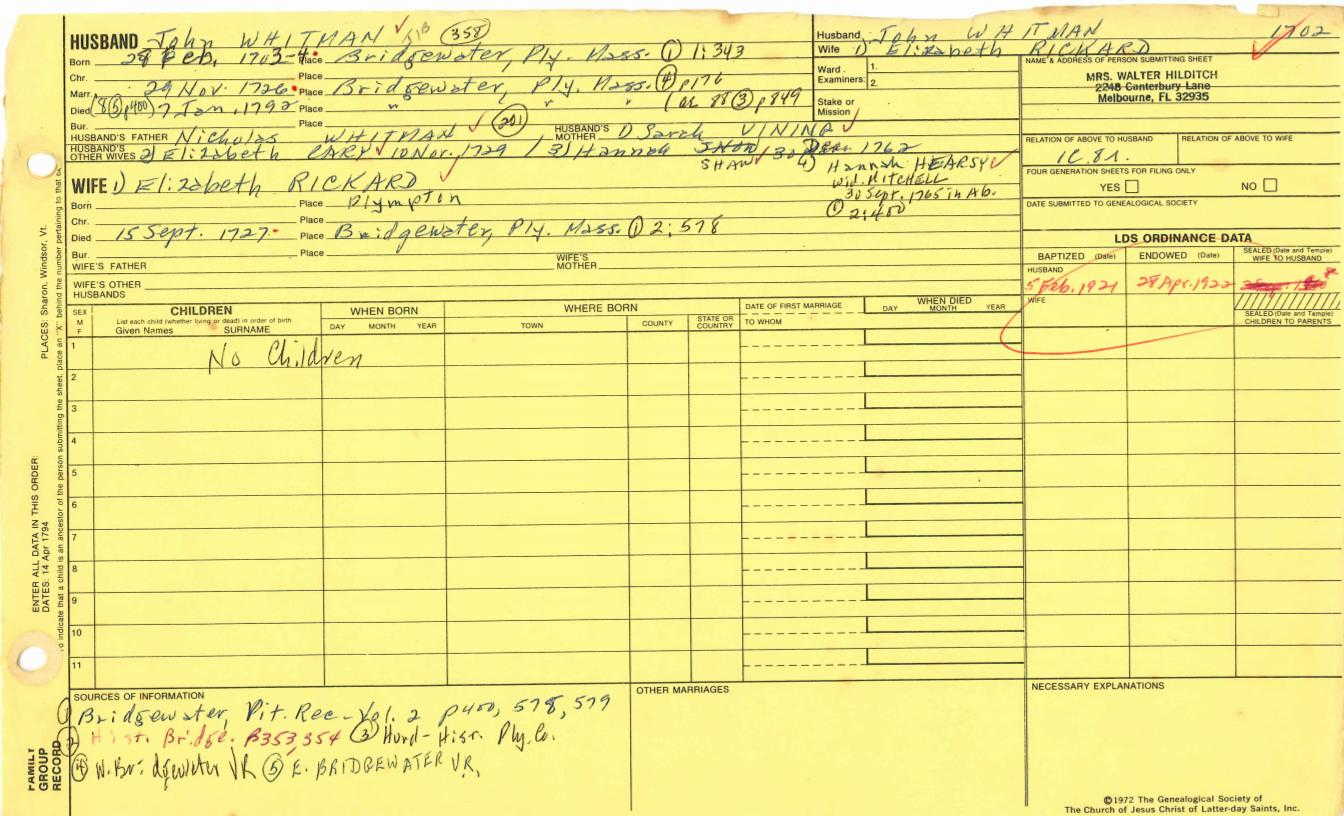 HUSBAND John WHITMAN ✓ SIB (358)
Born 28 Feb. 1703-4 Place Bridgewater, Ply. Mass. ① 1:343
Chr. Place
Marr. 29 Nov. 1726 Place Bridgewater, Ply. Mass. ④ p176
Died (8⑤,p400) 7 Jan, 1792 Place " " " (ae 88 ③ p849
Bur. Place
HUSBAND'S FATHER Nicholas WHITMAN ✓ (201) HUSBAND'S MOTHER 1) Sarah VINING ✓
HUSBAND'S OTHER WIVES 2) Elizabeth CARY ✓ 10 Nov. 1729 / 3) Hannah SHAW ✓ 30 Dec. 1762
4) Hannah HEARSY ✓
wid. MITCHELL
30 Sept. 1765 in Ab.
① 2:400
WIFE 1) Elizabeth RICKARD ✓
Born Place Plympton
Chr. Place
Died 15 Sept. 1727 Place Bridgewater, Ply. Mass. ① 2:578
Bur. Place
WIFE'S FATHER WIFE'S MOTHER
WIFE'S OTHER HUSBANDS
Husband John WHITMAN 1702
Wife 1) Elizabeth RICKARD ✓
Ward 1.
Examiners: 2.
Stake or Mission
NAME & ADDRESS OF PERSON SUBMITTING SHEET
MRS. WALTER HILDITCH
2248 Canterbury Lane
Melbourne, FL 32935
RELATION OF ABOVE TO HUSBAND RELATION OF ABOVE TO WIFE
1C.8R.
FOUR GENERATION SHEETS FOR FILING ONLY
YES NO
DATE SUBMITTED TO GENEALOGICAL SOCIETY
LDS ORDINANCE DATA
BAPTIZED (Date) ENDOWED (Date) SEALED (Date and Temple) WIFE TO HUSBAND
HUSBAND
5 Feb. 1921 28 Apr. 1922
WIFE
SEALED (Date and Temple) CHILDREN TO PARENTS
SEX M F CHILDREN WHEN BORN WHERE BORN DATE OF FIRST MARRIAGE WHEN DIED
List each child (whether living or dead) in order of birth
Given Names SURNAME DAY MONTH YEAR TOWN COUNTY STATE OR COUNTRY TO WHOM DAY MONTH YEAR
1 No Children
2
3
4
5
6
7
8
9
10
11
SOURCES OF INFORMATION
① Bridgewater, Vit. Rec - Vol. 2 p400, 578, 579
② Hist. Bridge. P353,354 ③ Hurd - Hist. Ply. Co.
④ W. Bridgewater VR ⑤ E. BRIDGEWATER V.R.
OTHER MARRIAGES
NECESSARY EXPLANATIONS
©1972 The Genealogical Society of
The Church of Jesus Christ of Latter-day Saints, Inc.
PLACES: Sharon, Windsor, Vt.
ENTER ALL DATA IN THIS ORDER:
DATES: 14 Apr 1794
indicate that a child is an ancestor of the person submitting the sheet, place an "X" behind the number pertaining to that
FAMILY GROUP RECORD